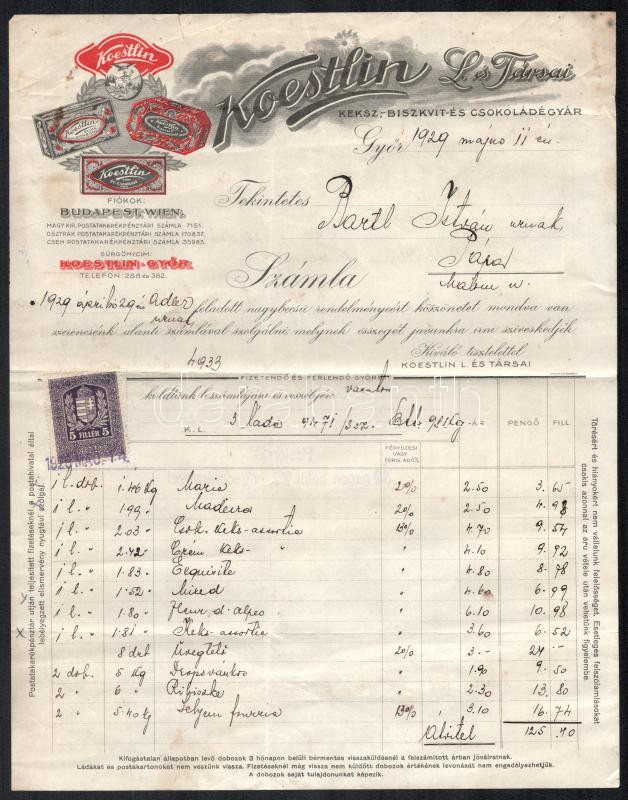 Koestlin
Koestlin
Koestlin
Koestlin
Koestlin L. és Társai
KEKSZ,- BISZKVIT- ÉS CSOKOLÁDÉGYÁR
Győr 1929 május 11 én
FIÓKOK:
BUDAPEST-WIEN.
MAGY. KIR. POSTATAKARÉKPÉNZTÁRI SZÁMLA 7151.
OSZTRÁK POSTATAKARÉKPÉNZTÁRI SZÁMLA 170837.
CSEH POSTATAKARÉKPÉNZTÁRI SZÁMLA 35983.
SÜRGÖNYCIM:
KOESTLIN-GYŐR
TELEFON: 288 és 382.
Tekintetes Bartl István urnak,
Pápa
Malom u.
Számla
1929 április 29 én Adler urnak feladott nagybecsü rendelményeért köszönetet mondva van
szerencsénk alanti számlával szolgálni, melynek összegét javunkra irni sziveskedjék
4933
Kiváló tisztelettel
KOESTLIN L. ÉS TÁRSAI
FIZETENDŐ ÉS PERLENDŐ GYŐR
küldtünk beszámlájára és veszélyére
K. L. 3 láda 98 Kg
FÉNYÜZÉSI VAGY FORG. ADÓ %
ÁR
PENGŐ
FILL.
5 FILLÉR 5
1 l. dob. 1.46 Kg Marie 2% 2.50 3.65
1 l. " 1.99 " Madeira 2% 2.50 4.98
1 l. " 2.03 " Csok. Keks-assortie 13% 4.70 9.54
1 l. " 2.42 " Crém Keks- " " 4.10 9.92
1 l. " 1.83 " Exquisite " 4.80 8.78
1 l. " 1.52 " Mixed " 4.60 6.99
1 l. " 1.80 " Fleur d. alpes " 6.10 10.98
1 l. " 1.81 " Keks-assortie " 3.60 6.52
8 drb Üvegtető 2% 3.- 24 -
2 dob. 5 Kg " 1.90 9.50
2 " 6 " Ribiszke " 2.30 13.80
2 " 5.40 Kg Selyem 13% 3.10 16.74
125.40
Postatakarékpénztár utján teljesitett fizetéseknél a postahivatal által
lebélyegzett elismervény nyugtául szolgál.
Törésért és hiányokért nem vállalunk felelősséget. Esetleges felszólamlásokat
csakis azonnal az áru vétele után vehetünk figyelembe.
Kifogástalan állapotban levő dobozok 3 hónapon belüli bérmentes visszaküldésénél a felszámitott árban jóváiratnak.
Ládákat és postakartonokat nem veszünk vissza. Fizetéseknél még vissza nem küldött dobozok értékének levonását nem engedélyezhetjük.
A dobozok saját tulajdonunkat képezik.